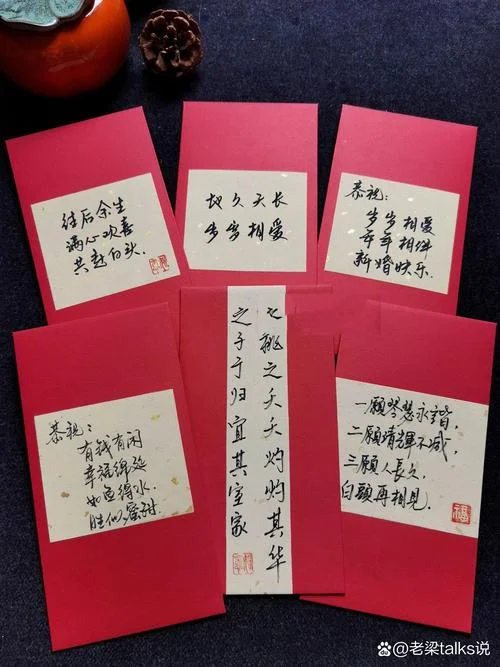 往后余生
满心欢喜
共赴白头.
地久天长
岁岁相爱
恭祝：
岁岁相爱
年年相伴
新婚快乐.
恭祝：
有钱有闲
幸福绵延
如鱼得水.
胜似蜜甜.
桃之夭夭灼灼其华
之子于归宜其室家
一願琴瑟永諧，
二願清輝不减，
三願人長久，
白頭再相見.
福
@老梁talks说